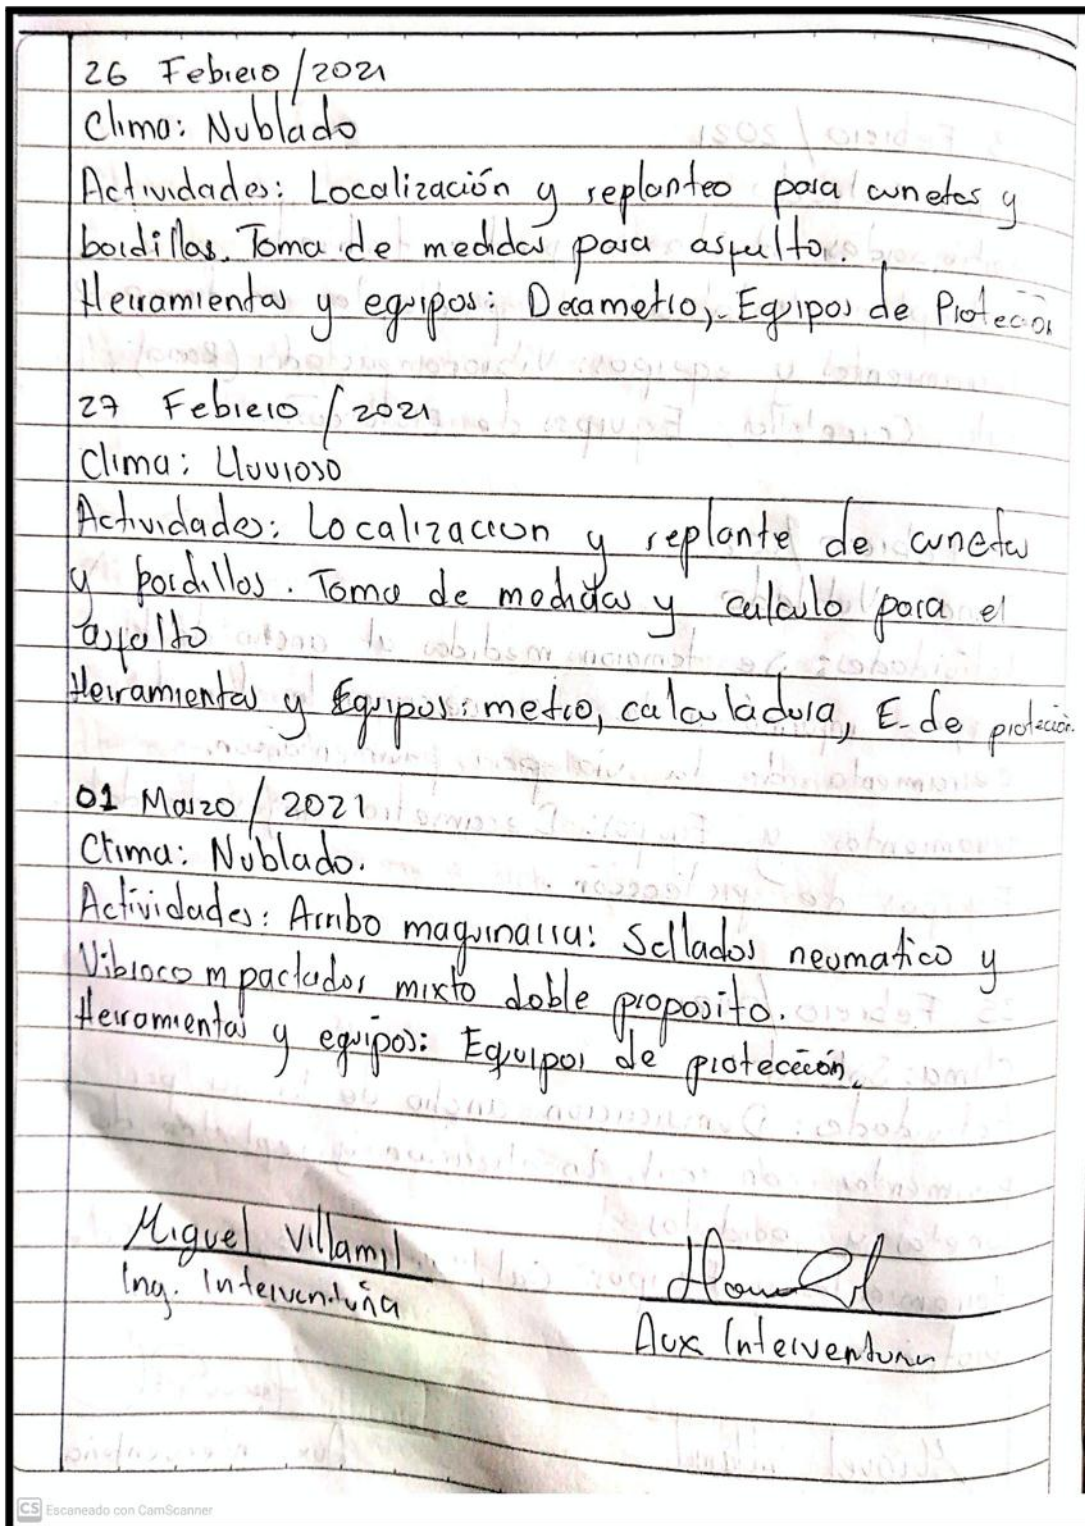 26 Febrero / 2021
Clima: Nublado
Actividades: Localización y replanteo para cunetas y
bordillos. Toma de medidas para asfalto.
Herramientas y equipos: Decametro, Equipos de Protección
27 Febrero / 2021
Clima: Lluvioso
Actividades: Localizacion y replante de cunetas
y bordillos. Toma de medidas y calculo para el
asfalto
Herramientas y Equipos: metro, calculadora, E. de protección.
01 Marzo / 2021
Clima: Nublado.
Actividades: Arribo maquinaria: Sellador neumatico y
Vibrocompactador mixto doble proposito.
Herramientas y equipos: Equipos de protección.
Miguel Villamil
Ing. Interventoría
Aux Interventoria
CS Escaneado con CamScanner